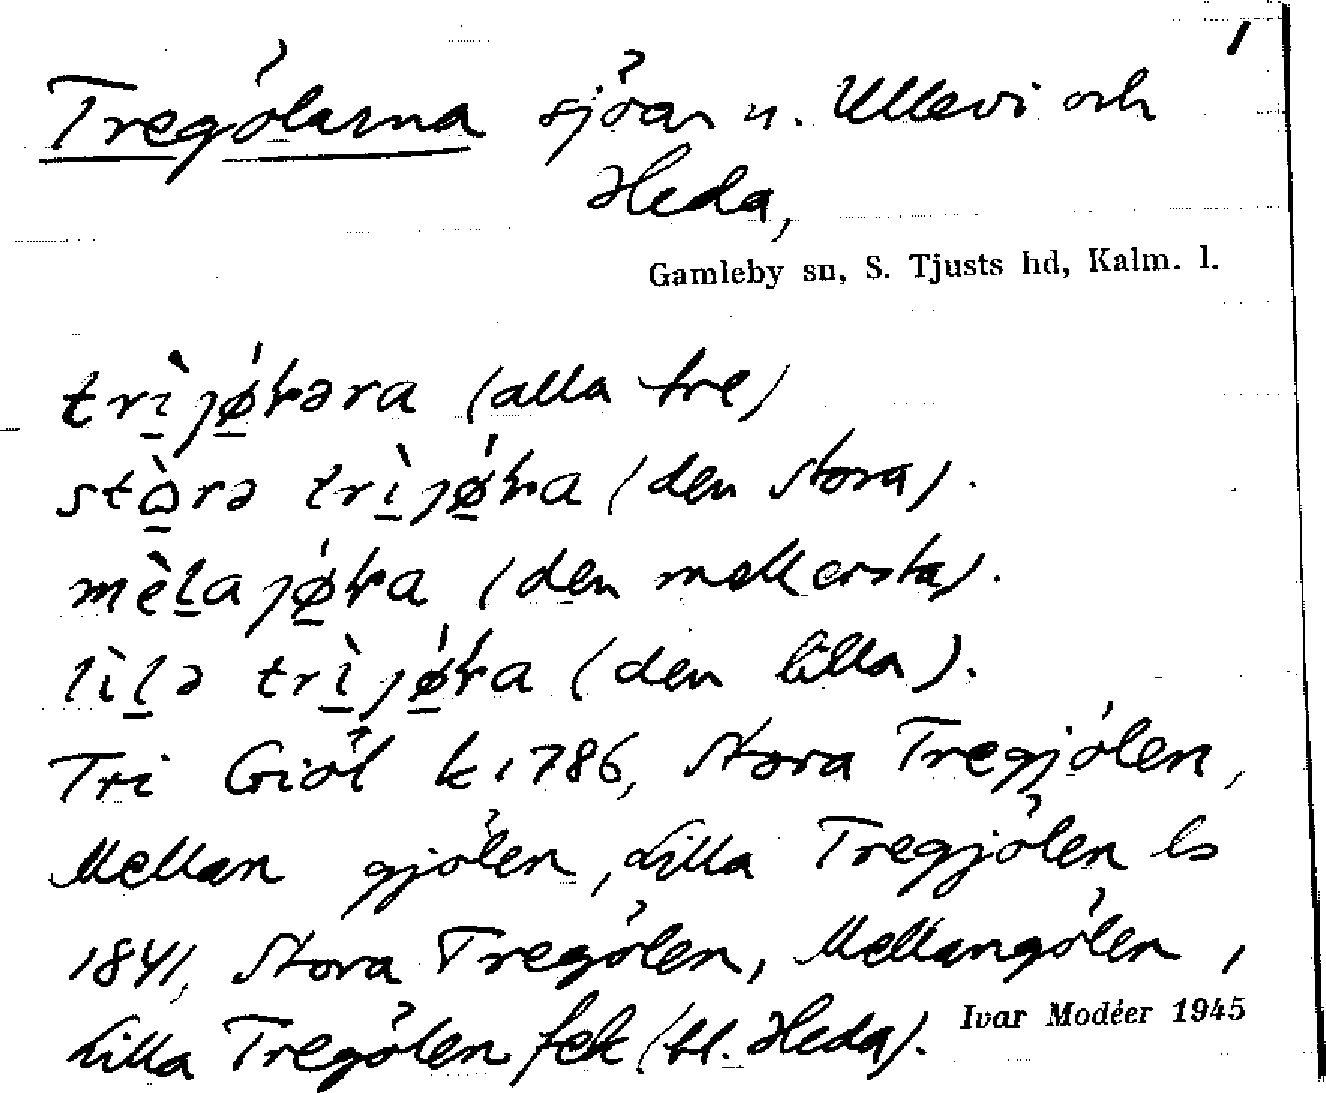 1
Tregölarna sjöar u. Ullevi och
Heda,
Gamleby sn, S. Tjusts hd, Kalm. l.
trìjǿɫəra (alla tre)
stòrə trìjǿɫa (den stora).
mèlajǿɫa (den mellersta).
lìlə trìjǿɫa (den lilla).
Tri Giöl k 1786, Stora Tregjölen,
Mellan gjölen, Lilla Tregjölen ls
1841, Stora Tregölen, Mellangölen,
Lilla Tregölen fek (bl. Heda).
Ivar Modéer 1945